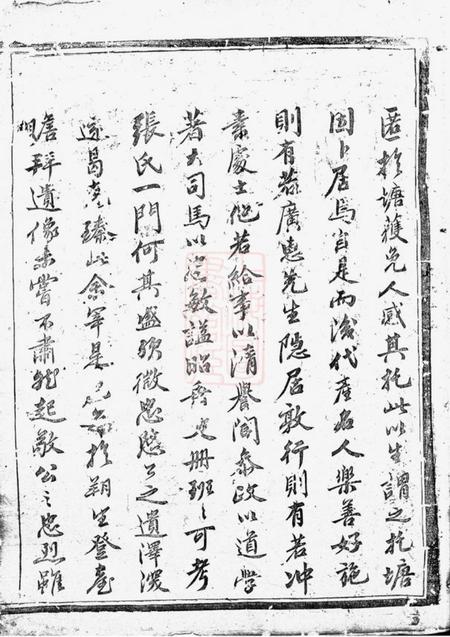 匿於塘獲免人感其托此以生謂之托塘
因卜居焉自是而後代產名人樂善好施
則有慕廣惠先生隱居敦行則有若沖
素處士他若給事以清譽聞泰政以道學
著大司馬以忠敏謚昭於史冊班〻可考
張氏一門何其盛歟微忠愍公之遺澤深
遠曷克臻此余軍是邑於朔望登堂
瞻拜遺像未嘗不肅然起敬公之忠烈雖